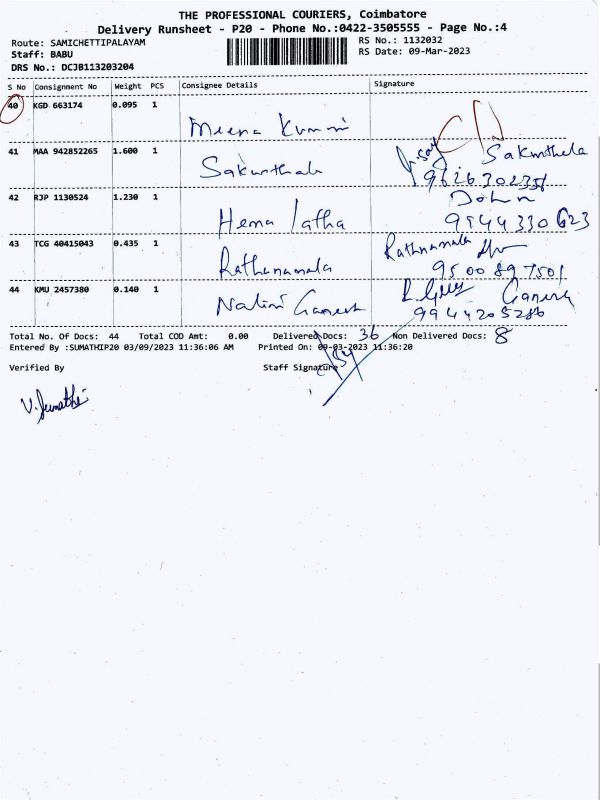 THE PROFESSIONAL COURIERS, Coimbatore
Delivery Runsheet - P20 - Phone No.:0422-3505555 - Page No.:4
Route: SAMICHETTIPALAYAM
Staff: BABU
DRS No.: DCJB113203204
RS No.: 1132032
RS Date: 09-Mar-2023
S No Consignment No Weight PCS Consignee Details Signature
40 KGD 663174 0.095 1 Meena Kumari
41 MAA 942852265 1.600 1 Sakunthala Sakunthala
42 RJP 1130524 1.230 1 Hema latha John
9944330623
43 TCG 40415043 0.435 1 Rathanamala Rathnamala
9500897501
44 KMU 2457380 0.140 1 Nalini Ganesh Ganesh
9944205286
Total No. Of Docs: 44 Total COD Amt: 0.00 Delivered Docs: 36 Non Delivered Docs: 8
Entered By :SUMATHIP20 03/09/2023 11:36:06 AM Printed On: 09-03-2023 11:36:20
Verified By Staff Signature
V. Sumathi